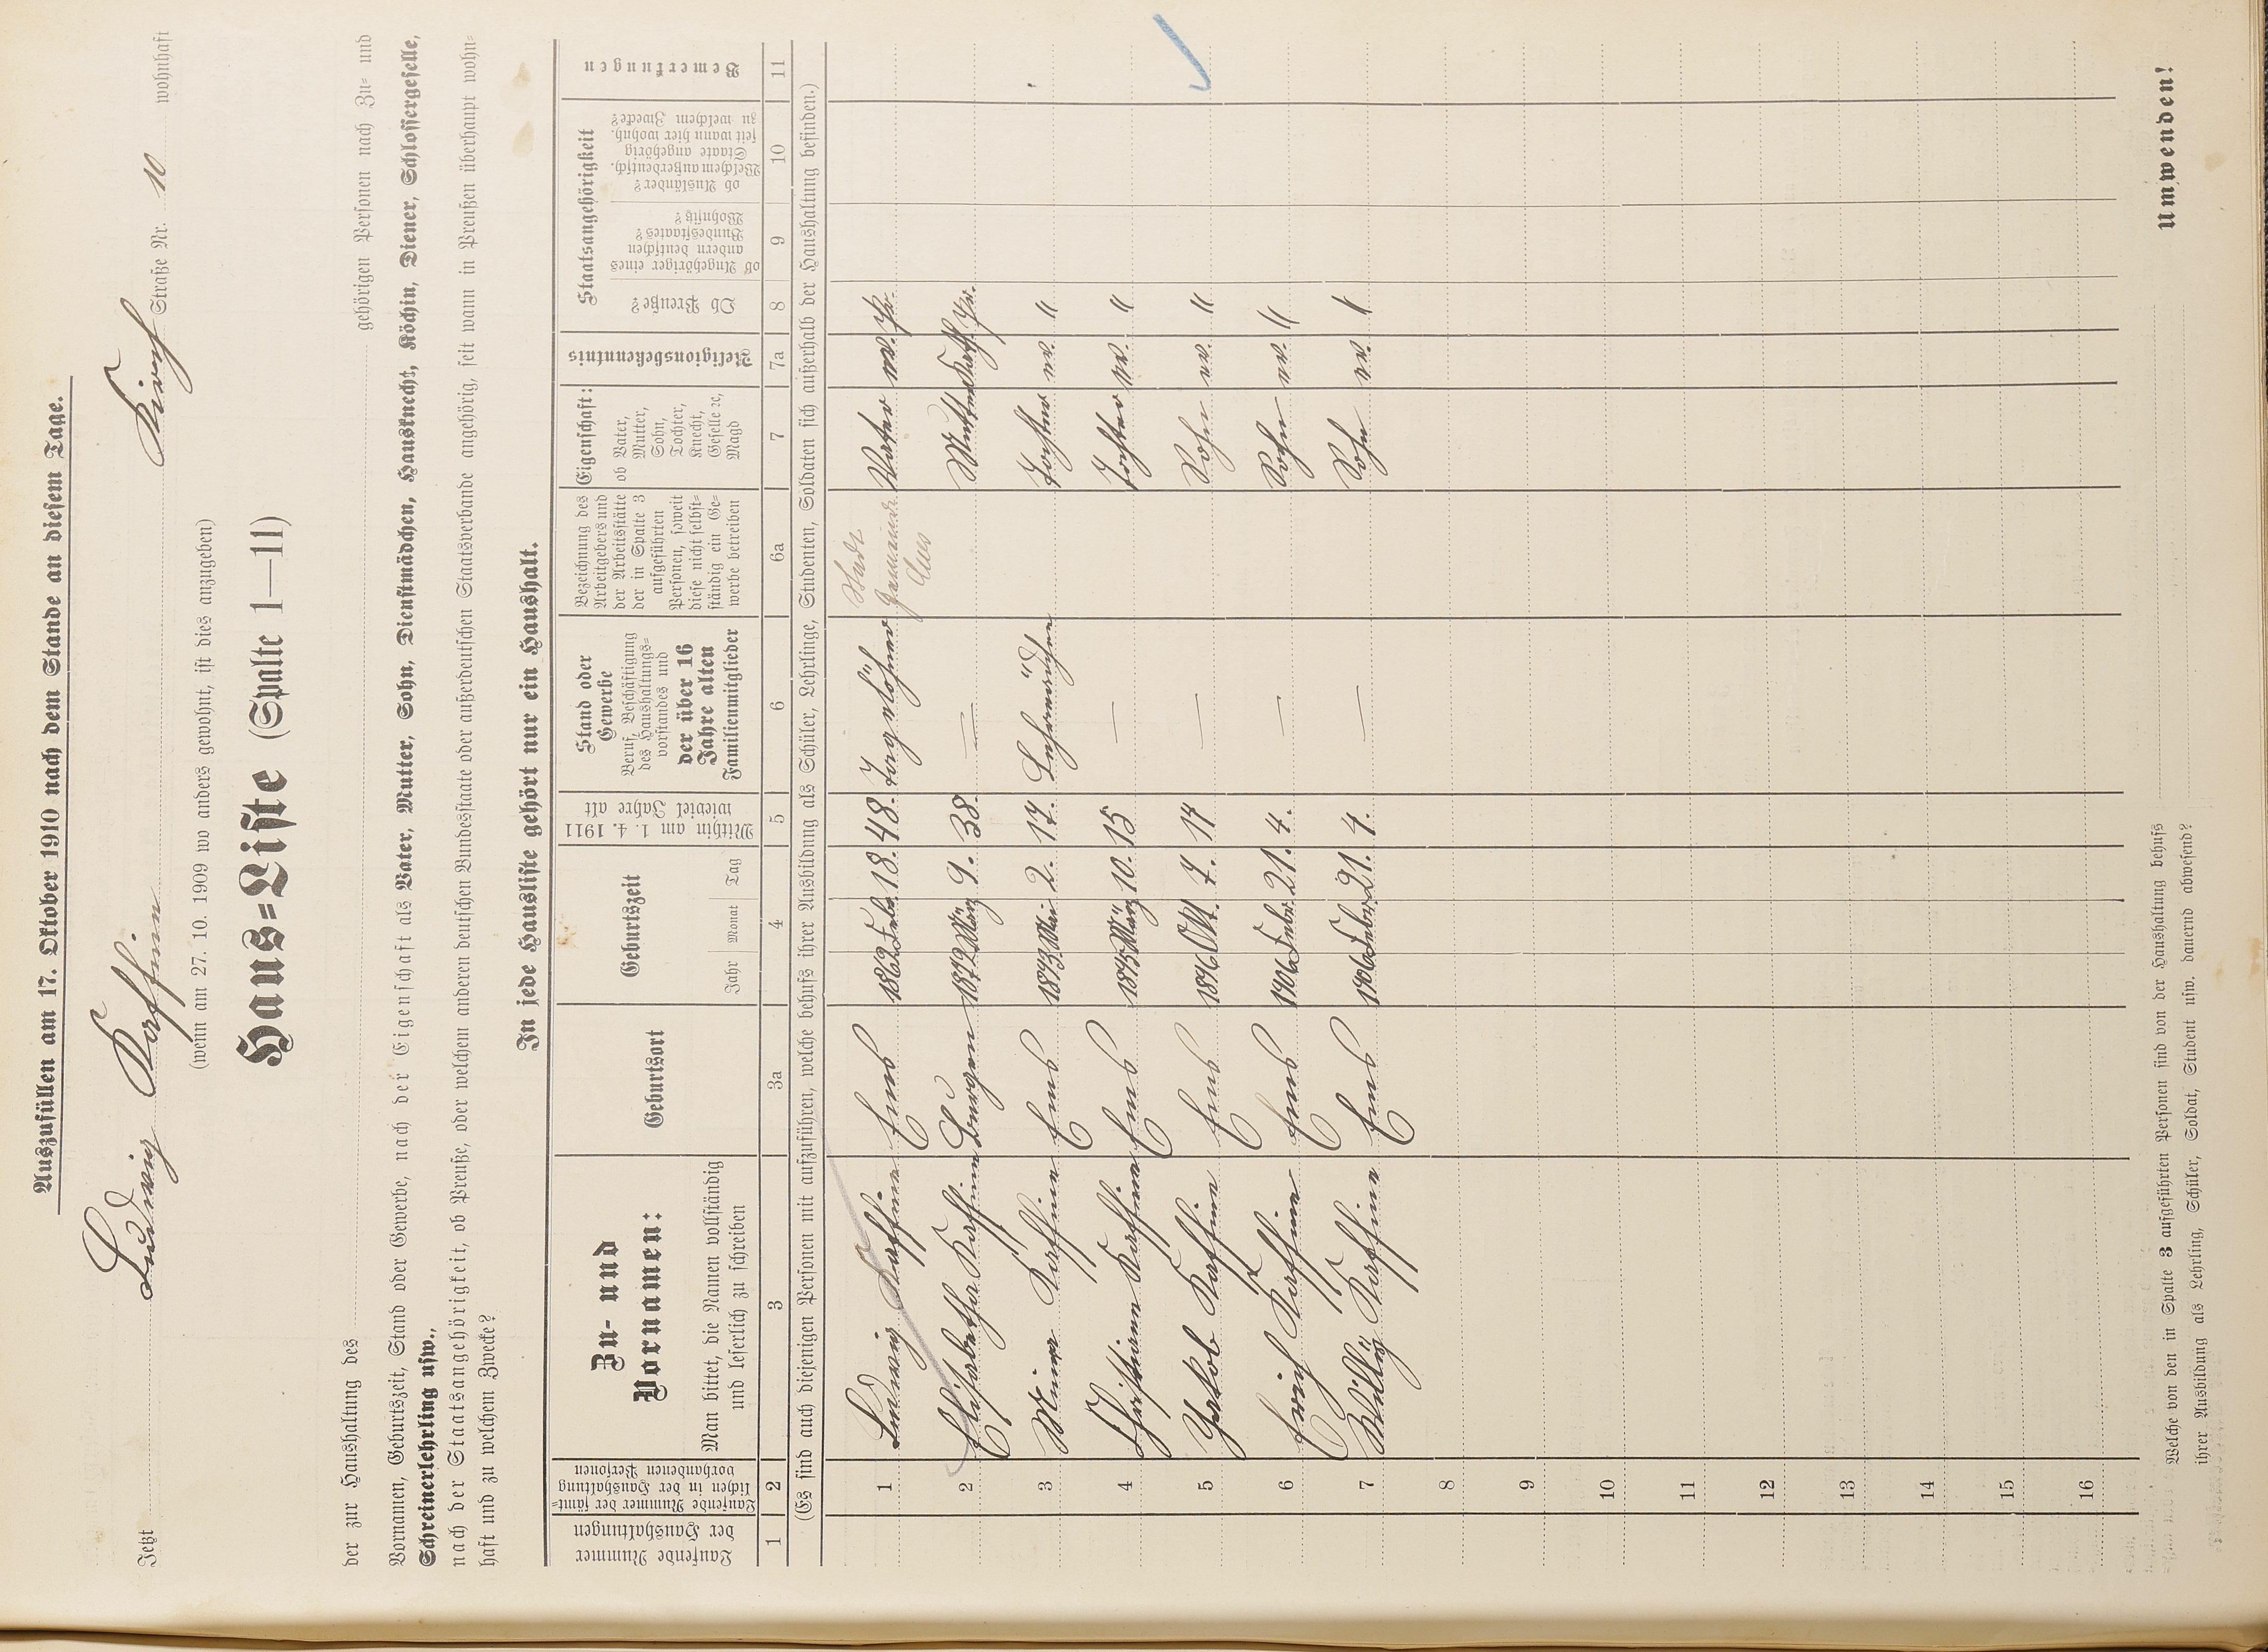 Auszufüllen am 17. Oktober 1910 nach dem Stande an diesem Tage.
Jetzt Ludwig Kaffine Kirch Straße Nr. 10 wohnhaft
(wenn am 27. 10. 1909 wo anders gewohnt, ist dies anzugeben)
Haus=Liste (Spalte 1—11)
der zur Haushaltung des gehörigen Personen nach Zu= und
Vornamen, Geburtszeit, Stand oder Gewerbe, nach der Eigenschaft als Vater, Mutter, Sohn, Dienstmädchen, Hausknecht, Köchin, Diener, Schlossergeselle,
Schreinerlehrling usw.,
nach der Staatsangehörigkeit, ob Preuße, oder welchem anderen deutschen Bundesstaate oder außerdeutschen Staatsverbande angehörig, seit wann in Preußen überhaupt wohn=
haft und zu welchem Zwecke?
In jede Hausliste gehört nur ein Haushalt.
Laufende Nummer der Haushaltungen
Laufende Nummer der sämt=lichen in der Haushaltung vorhandenen Personen
Zu- und Vornamen:
Man bittet, die Namen vollständig und leserlich zu schreiben
Geburtsort
Geburtszeit
Jahr Monat Tag
Mithin am 1. 4. 1911 wieviel Jahre alt
Stand oder Gewerbe
Beruf, Beschäftigung des Haushaltungs=vorstandes und der über 16 Jahre alten Familienmitglieder
Bezeichnung des Arbeitgebers und der Arbeitsstätte der in Spalte 3 aufgeführten Personen, soweit diese nicht selbst=ständig ein Ge=werbe betreiben
Eigenschaft:
ob Vater, Mutter, Sohn, Tochter, Knecht, Geselle ꝛc, Magd
Religionsbekenntnis
Staatsangehörigkeit
Ob Preuße?
ob Angehöriger eines andern deutschen Bundesstaates? Wohnsitz?
ob Ausländer? Welchem außerdeutsch. Staate angehörig seit wann hier wohnh. zu welchem Zwecke?
Bemerkungen
1 2 3 3a 4 5 6 6a 7 7a 8 9 10 11
(Es sind auch diejenigen Personen mit aufzuführen, welche behufs ihrer Ausbildung als Schüler, Lehrlinge, Studenten, Soldaten sich außerhalb der Haushaltung befinden.)
1 Ludwig Kaffine Ems 1862 Febr. 18. 48. Tagelöhner Stadt Gemeinde Ems Vater ev. Pr.
2 Elisabetha Kaffine Bürgen 1872 März 9. 38. — Mutter Kath. Pr.
3 Minna Kaffine Ems 1893 Mai 2. 17. Lehrmädchen Tochter ev. "
4 Christiane Kaffine Ems 1895 März 10. 15 — Tochter ev. "
5 Jakob Kaffine Ems 1896 Okt. 7. 14 — Sohn ev. "
6 Erich Kaffine Ems 1906 Febr. 21. 4. — Sohn ev. "
7 Willÿ Kaffine Ems 1906 Febr. 21. 4. — Sohn ev. "
8
9
10
11
12
13
14
15
16
Welche von den in Spalte 3 aufgeführten Personen sind von der Haushaltung behufs
ihrer Ausbildung als Lehrling, Schüler, Soldat, Student usw. dauernd abwesend?
Umwenden!